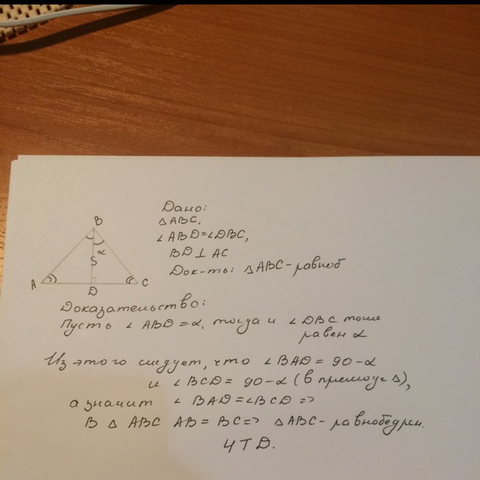 Дано:
△ABC,
∠ABD=∠DBC,
BD⊥AC
Док-ть: △ABC-равноб
B
α
A
D
C
Доказательство:
Пусть ∠ABD=α, тогда и ∠DBC тоже
равен α
Из этого следует, что ∠BAD= 90-α
и ∠BCD= 90-α (в прямоуг △),
а значит ∠BAD=∠BCD =>
В △ ABC AB=BC=> △ABC- равнобедрен.
ЧТД.